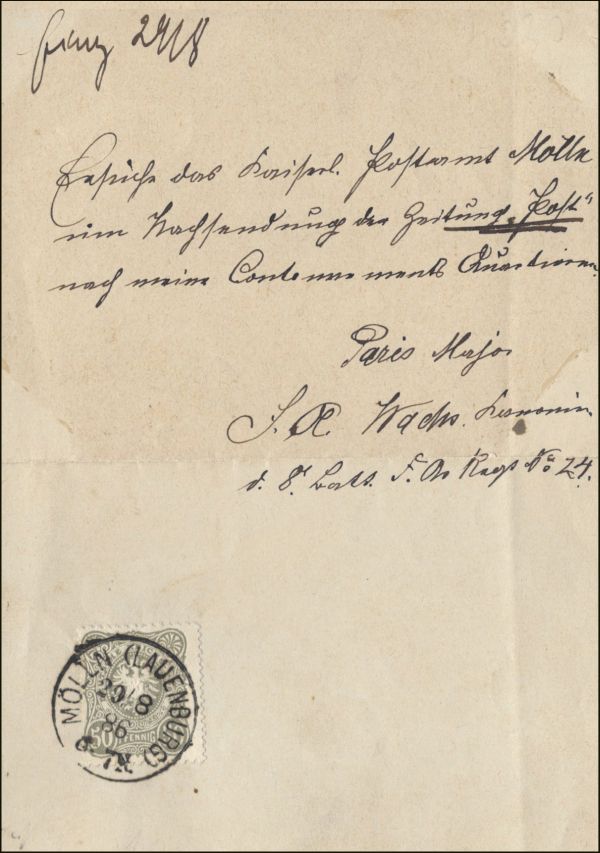 29/8
Ersuche das Kaiserl. Postamt Mölln
um Nachsendung der Zeitung „Post“
nach meine Contonnements Quartieren.
Paris Major
I. A. Wachs. Kanonier
d. 8. Batt. F. A. Regt No 24.
MÖLLN (LAUENBURG)
29 8
86
50 PFENNIG